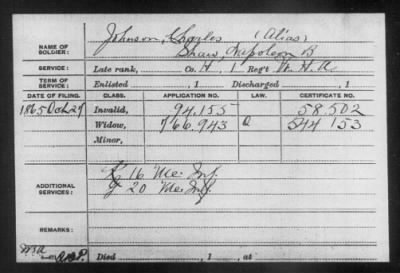 Johnson, Charles (Alias)
NAME OF SOLDIER: Shaw, Napoleon B
SERVICE: Late rank, Co. H, 1 Reg't H. A.
TERM OF SERVICE: Enlisted , 1 Discharged , 1
DATE OF FILING. CLASS. APPLICATION NO. LAW. CERTIFICATE NO.
1865 Oct 27 Invalid, 94.155 58.502
Widow, 766.943 544 153
Minor,
ADDITIONAL SERVICES: 16 Me. Inf.
20 Me. Inf.
REMARKS:
Died , 1 , at